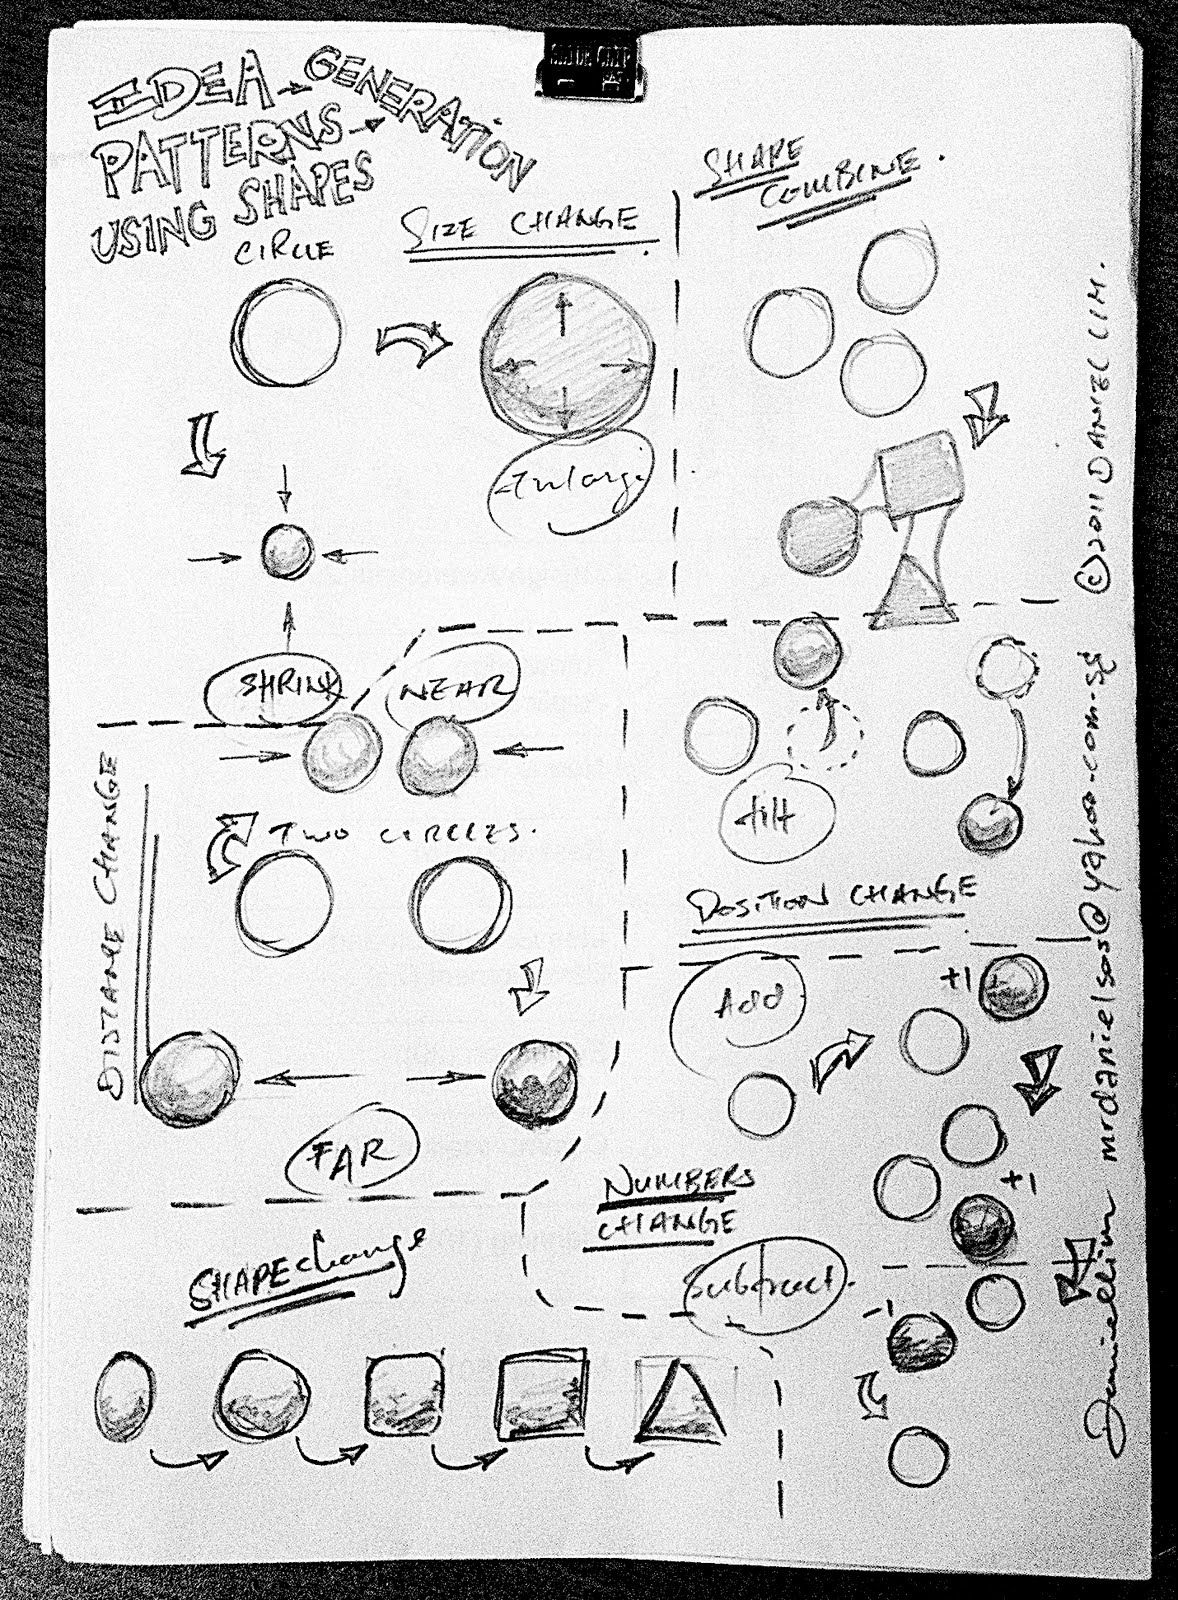 IDEA → GENERATION
PATTERNS →
USING SHAPES
CIRCLE
SIZE CHANGE.
Enlarge
SHRINK
SHAPE
COMBINE.
NEAR
TWO CIRCLES.
DISTANCE CHANGE
FAR
tilt
POSITION CHANGE
Add
+1
+1
NUMBERS
CHANGE
Subtract.
-1
SHAPE change
©2011 DANIEL LIM.
mrdanielsos@yahoo.com.sg